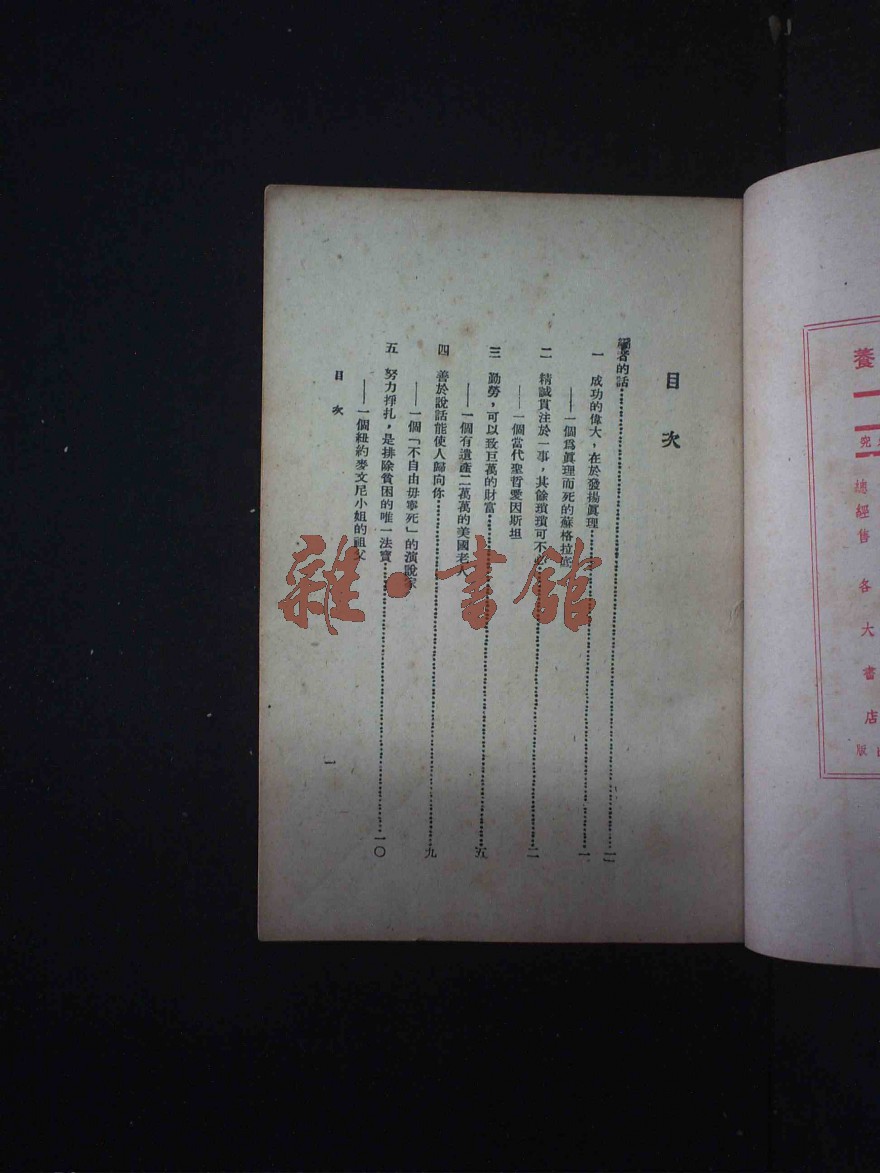 養
總經售 各大書店
版
目次
編者的話……一
一 成功的偉大，在於發揚眞理……一
——一個爲眞理而死的蘇格拉底
二 精誠貫注於一事，其餘瑣瑣可不必……二
——一個當代聖哲愛因斯坦
三 勤勞，可以致巨萬的財富……五
——一個有遺產二萬萬的美國老人
四 善於說話能使人歸向你……九
——一個「不自由毋寧死」的演說家
五 努力掙扎，是排除貧困的唯一法寶……一〇
——一個紐約麥文尼小姐的祖父
目次
一
雜·書館